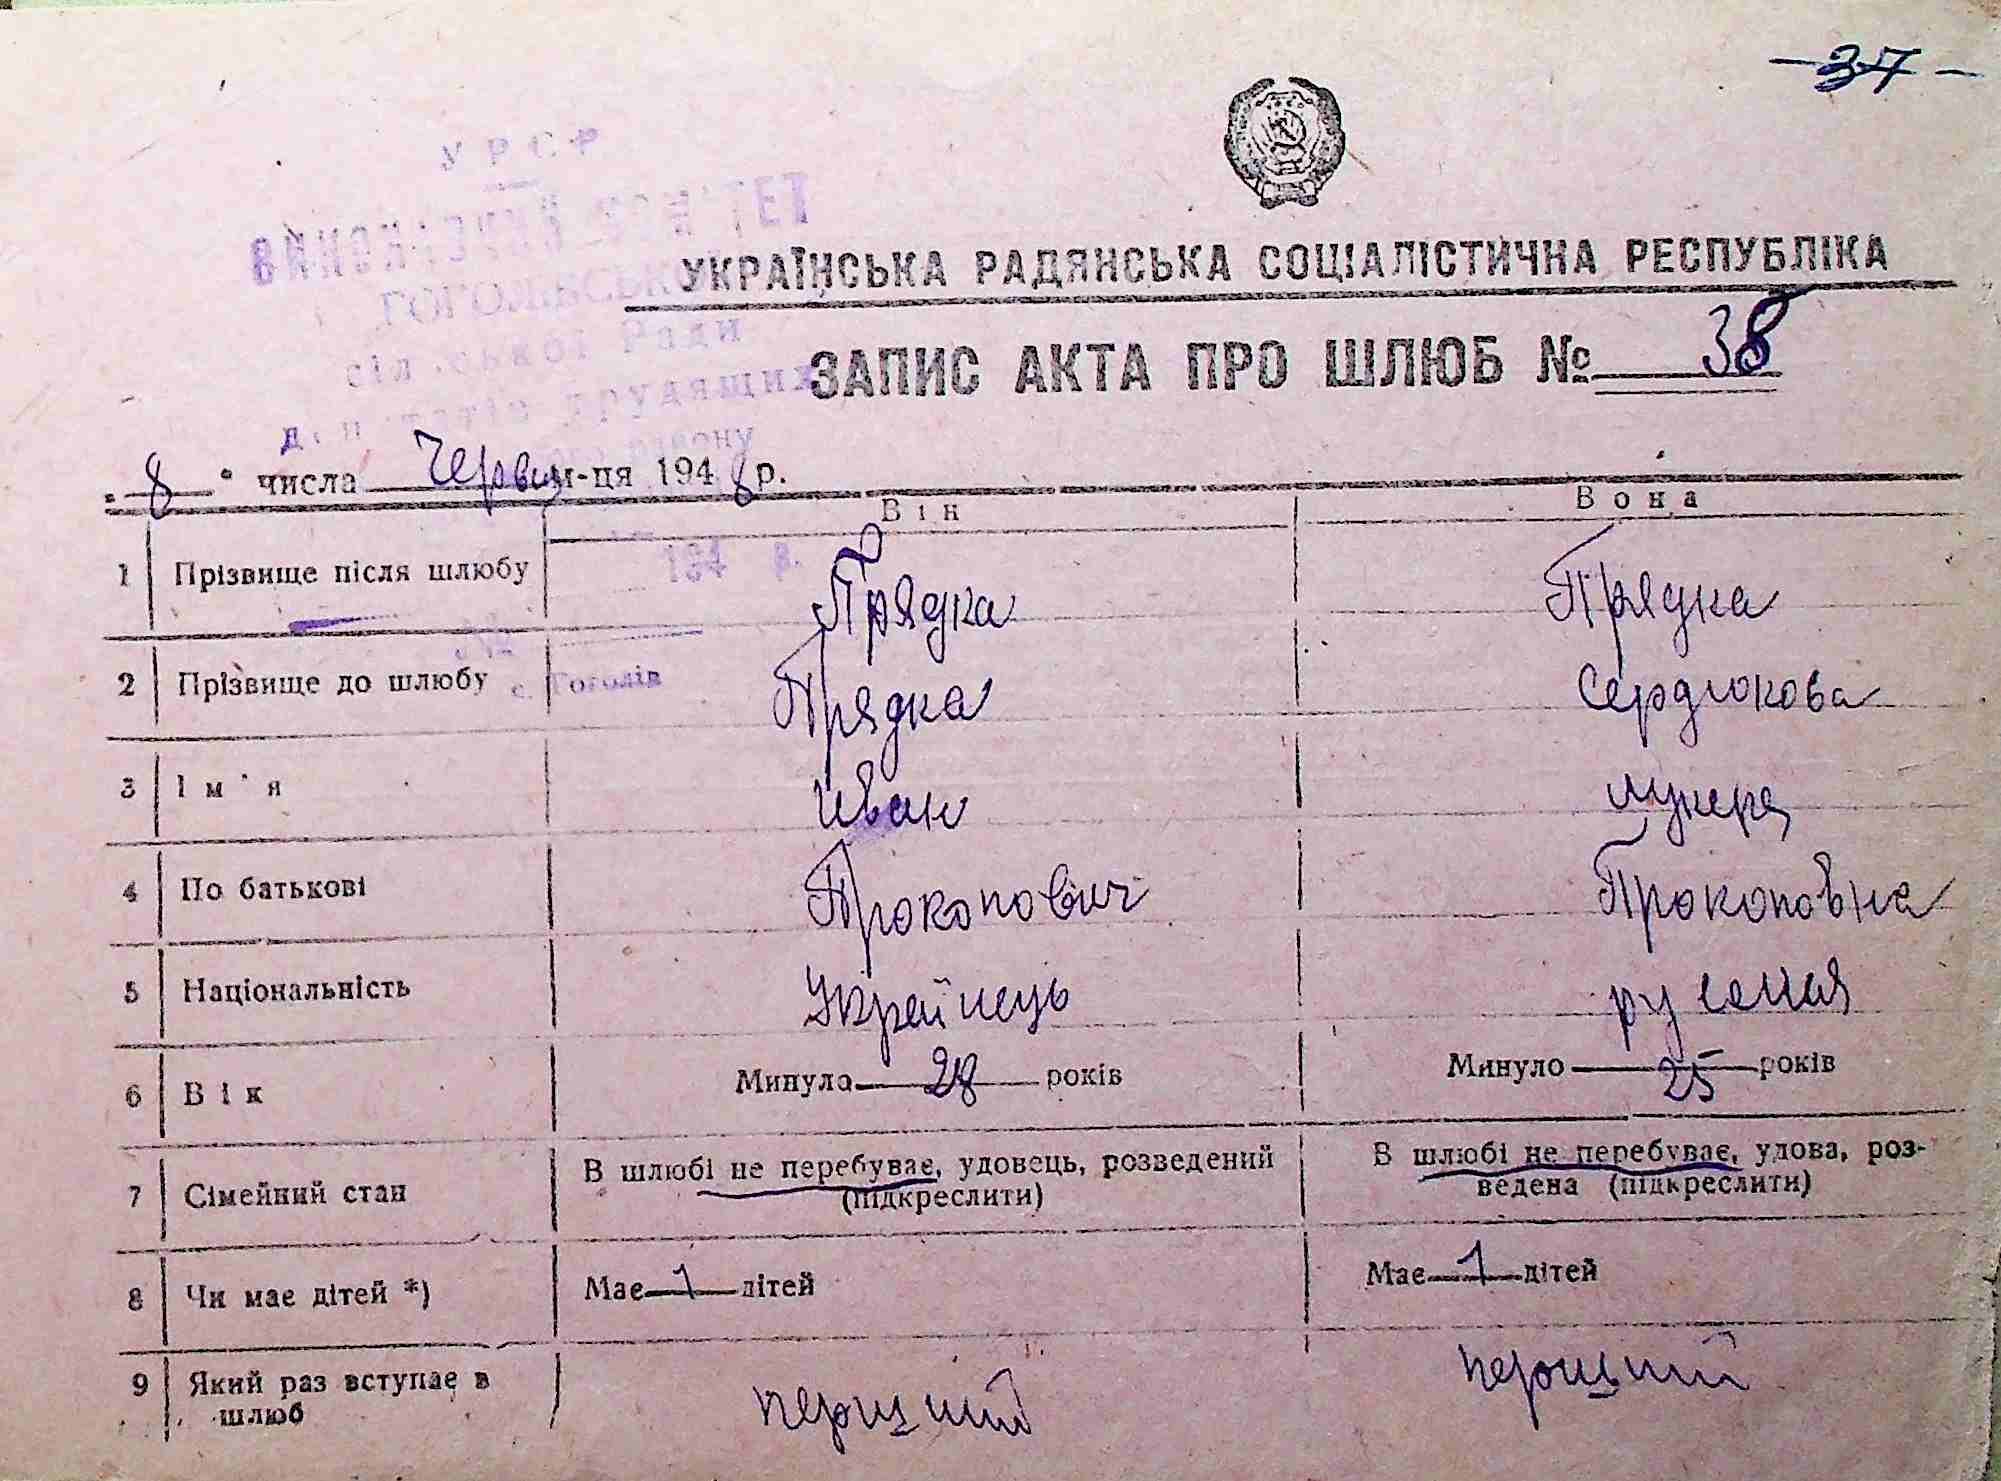 -37-
УРСР
ВИКОНАВЧИЙ КОМІТЕТ
ГОГОЛЬСЬКОЇ
сільської Ради
депутатів трудящих
району
УКРАЇНСЬКА РАДЯНСЬКА СОЦІАЛІСТИЧНА РЕСПУБЛІКА
ЗАПИС АКТА ПРО ШЛЮБ № 38
„8" числа Червця м-ця 1948 р.
Він Вона
194 р.
1 Прізвище після шлюбу Прядка Прядка
№
с. Гоголів
2 Прізвище до шлюбу Прядка Сердюкова
3 Ім'я Иван Лукеря
4 По батькові Прокопович Прокоповна
5 Національність Українець
6 Вік Минуло 28 років Минуло 25 років
7 Сімейний стан В шлюбі не перебуває, удовець, розведений (підкреслити) В шлюбі не перебуває, удова, роз-
ведена (підкреслити)
8 Чи має дітей *) Має 1 дітей Має 1 дітей
9 Який раз вступає в шлюб перший перший